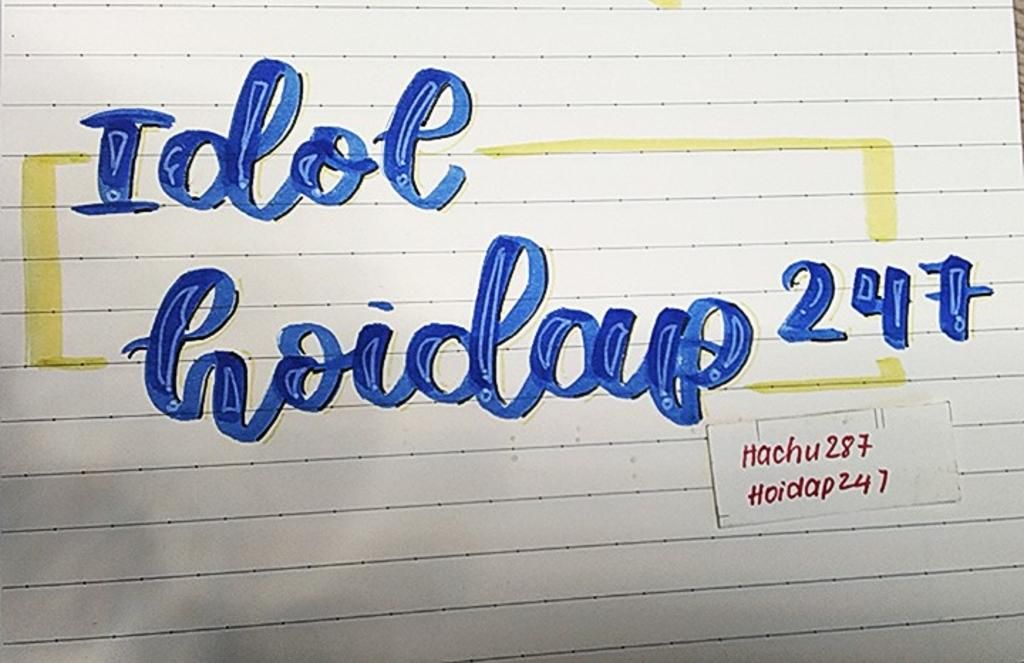 Idol
hoidap 247
Hachu287
Hoidap247